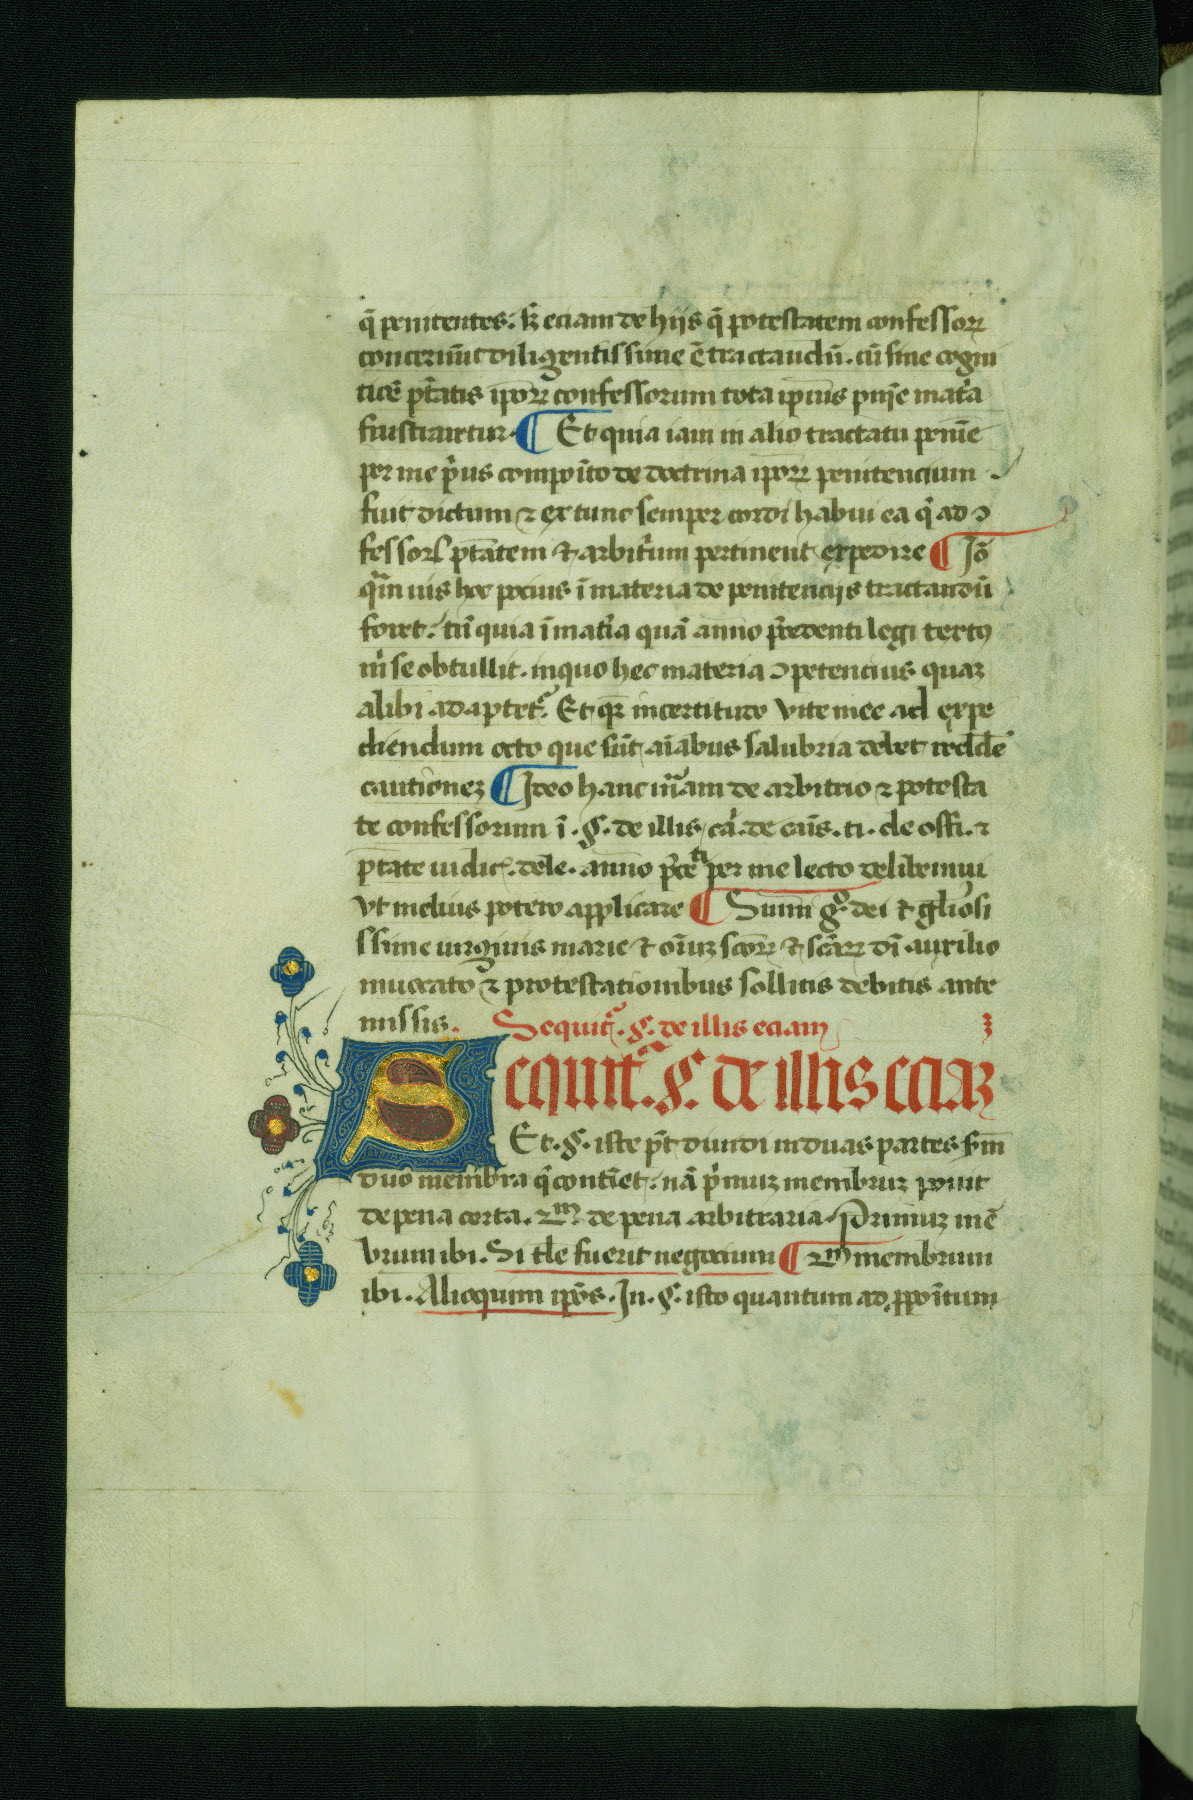 q̄ penitentes. sꝫ eciam de hijs q̄ potestatem confessoꝝ
concernūt diligentissime ē tractandū. cū sine cogni
ticōe p̄tatis ip̄oꝝ confessorum tota ip̄ius pn̄ie mat̄ia
frustraretur. ¶ Et quia iam in alio tractatu penit̄e
per me p̄us compoīto de doctrina ip̄oꝝ penitencium
fuit dictum ⁊ ex tunc semper cordi habui ea q̄ ad ꝯ
fessoꝝ p̄tatem ⁊ arbitⁱum pertinent expedire ¶ Iō
qm̄ uis hoc pocius ī materia de penitencijs tractandū
foret. tn̄ quia ī mat̄ia quā anno p̄cedenti legi textꝰ
m̄ se obtullit. in quo hec materia ꝯpetencius quaꝫ
alibi adaptet᷑. Et qꝛ incertitudo vite mee ad expe
diendum octo que sūt aīabus salubria debet redde
cautionez ¶ Ideo hanc mᵃam de arbitrio ⁊ potesta
te confessorum ī .§. de illis, ca. de cāis. ti. de offi. ⁊
p̄tate iudic̄. dele. anno p̄cēti per me lecto deliberaui
vt melius potero applicare ¶ Summi gͦ dei ⁊ gl̄iosi
ssime uirginis marie ⁊ oīuꝫ sc̄oꝝ ⁊ sc̄aꝝ dī auxilio
inuocato ⁊ protestationibus sollitis debitis ante
missis. Sequit᷑ .§. de illis eciam ꝫ
Sequit᷑ .§. de illis eciaꝫ
Et .§. iste pt̄ diuidi in duas partes. sm̄
duo membra q̄ contīet. nā p̄muꝫ membruꝫ ponit
de pena certa. 2ᵐ de pena arbitraria. Primuꝫ mē
brum ibi. Si tl̄e fuerit negocium ¶ 2ᵐ membrum
ibi. Alioquum ip̄os. In .§. isto quantum ad ꝓpoītum